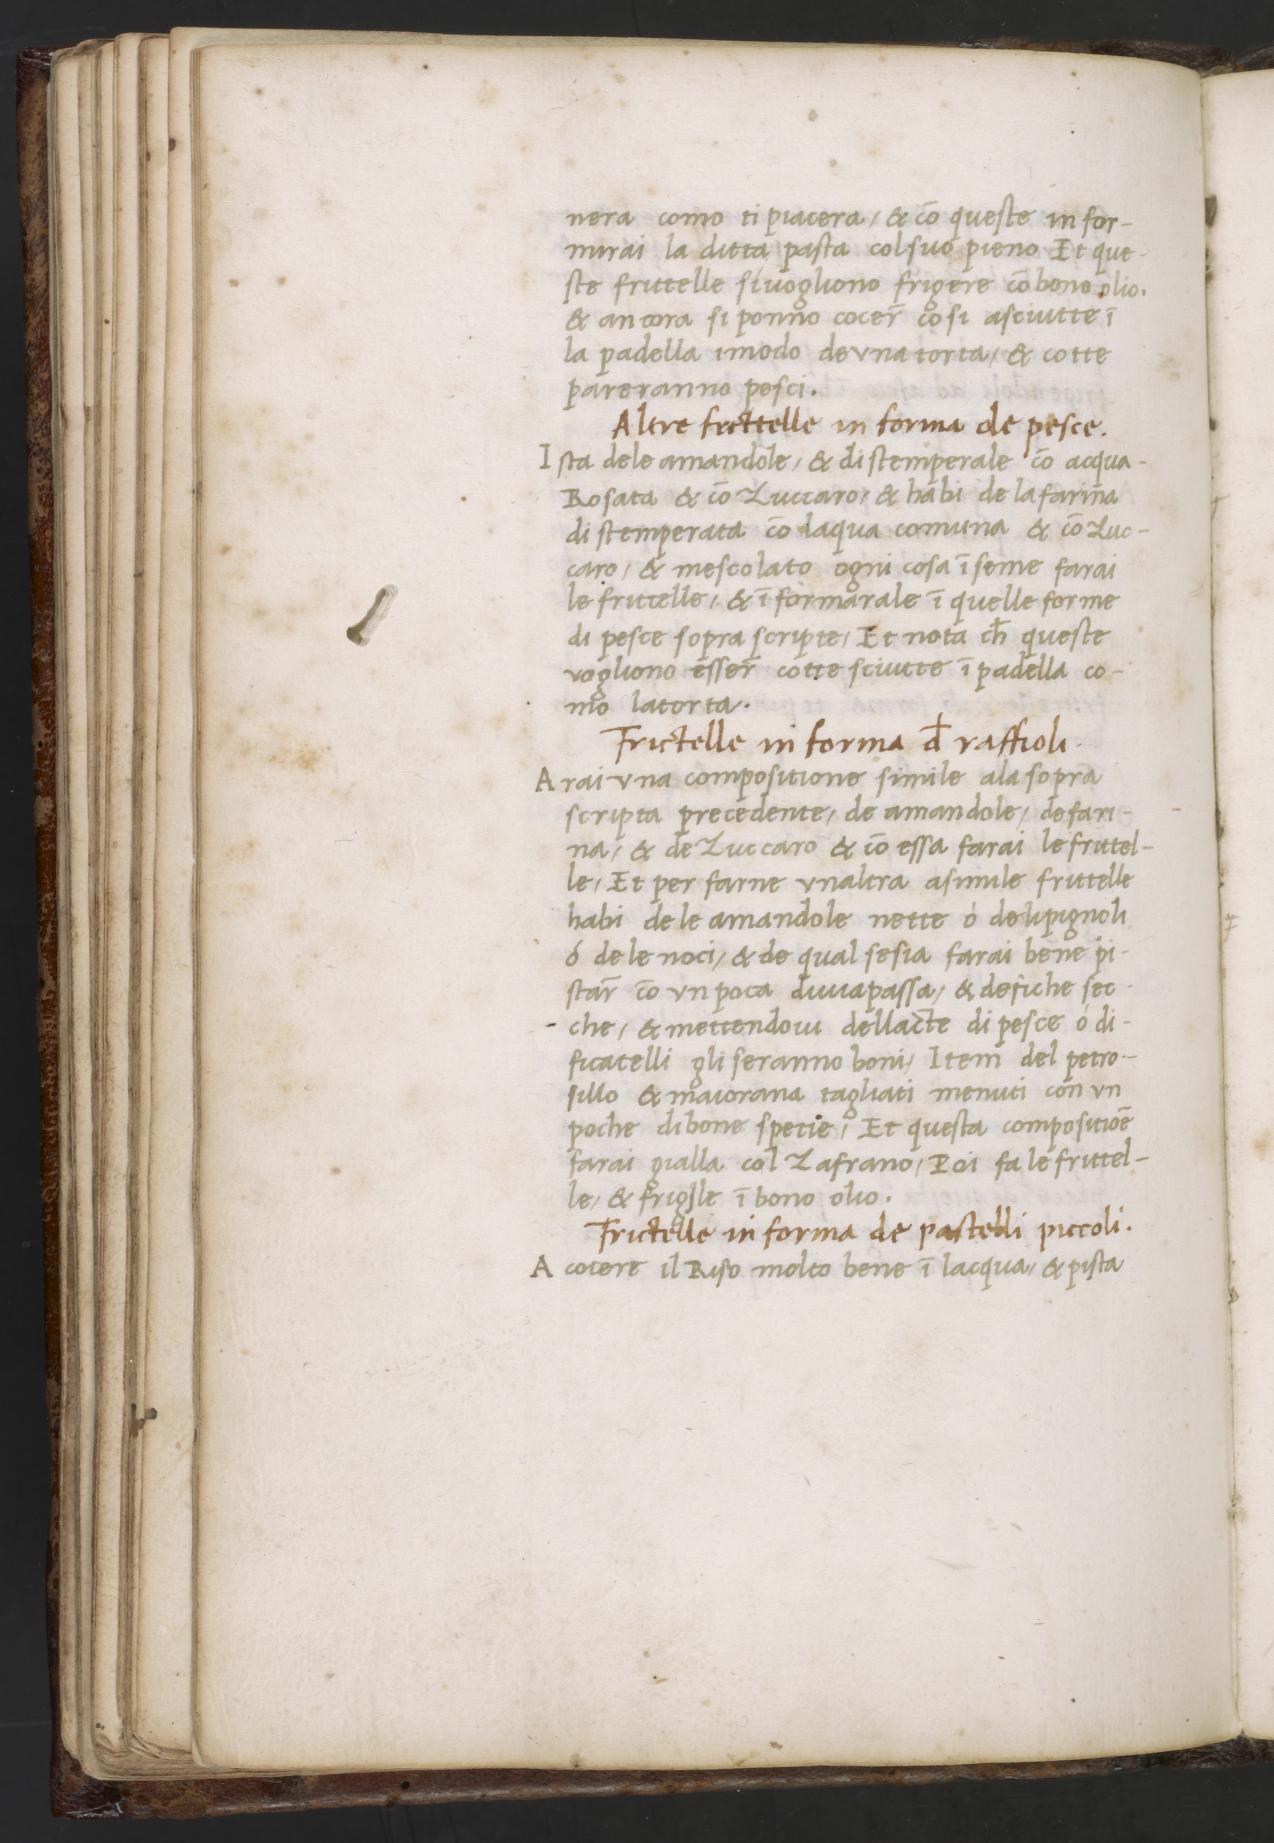 nera como ti piacera, & cō queste in for-
mirai la ditta pasta col suo pieno Et que-
ste frittelle si vogliono frigere cō bono olio.
& ancora si ponno cocer̄ cosi asciutte ī
la padella imodo de vna torta, & cotte
pareranno pesci.
Altre fricttelle in forma de pesce.
Ista dele amandole, & distemperale cō acqua-
Rosata & cō Zuccaro, & habi de la farina
distemperata cō laqua comuna & cō Zuc-
caro, & mescolato ogni cosa īseme farai
le frittelle, & īformarale ī quelle forme
di pesce sopra scripte, Et nota ch̄ queste
vogliono esser̄ cotte sciutte ī padella co-
mo la torta.
Frictelle in forma d̄ raffioli.
Arai vna compositione simile ala sopra
scripta precedente, de amandole, de fari-
na, & de Zuccaro & cō essa farai le frittel-
le, Et per farne vnaltra asimile frittelle
habi de le amandole nette ó de li pignoli
ó de le noci, & de qual se sia farai bene pi-
star̄ cō vn poca duua passa, & de fiche sec-
che, & mettendoui del lacte di pesce ó di-
ficatelli gli seranno boni, Item del petro-
sillo & maiorana tagliati menuti con vn
poche di bone specie, Et questa compositiōe
farai gialla col Zafrano, Poi fa le frittel-
le, & frigile ī bono olio.
Frictelle in forma de pastelli piccoli.
A cocere il Riso molto bene ī lacqua, & pista